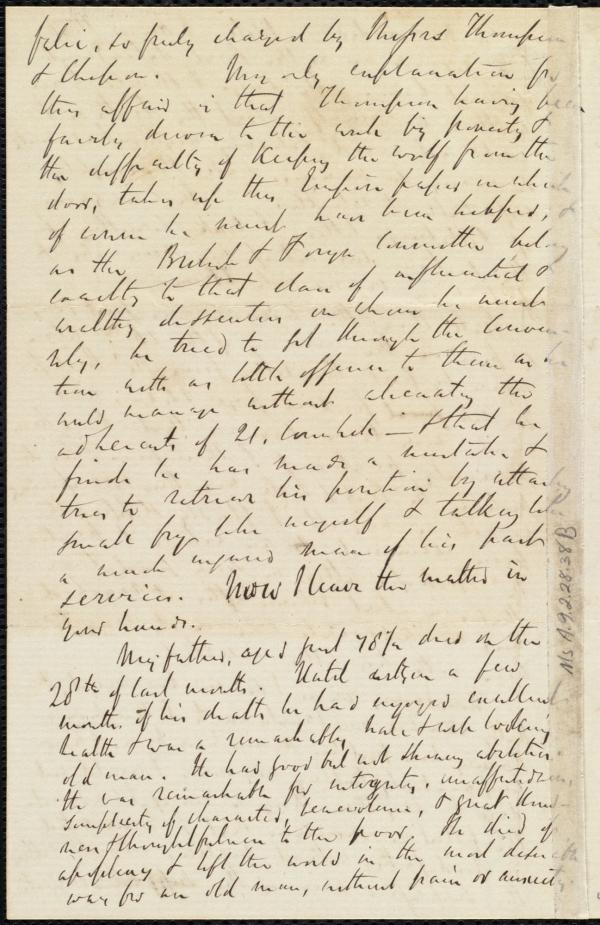 false, so freely charged by Messrs Thompson
& Chesson. My only explanation for
this affair is that Thompson having been
fairly driven to this work by poverty &
the difficulty of keeping the wolf from the
door, takes up this Empire paper in which
of course he must have been helped, &
as the British & Foreign Committee belong
exactly to that class of influential &
wealthy dissenters on whom he must
rely, he tried to get through the
with as little offence to them as he
could manage without alienating the
adherents of 21, Cornhill — & that he
finds he has made a mistake &
tries to retrieve his position by attacking
small fry like myself & talking like
a much injured man of his past
services. Now I leave the matter in
your hands.
My father, aged just 78½ died on the
28th of last month. Until within a few
months of his death he had enjoyed excellent
health & was a remarkably hale & well looking
old man. He had good but not shining abilities.
He was remarkable for integrity, unaffectedness,
simplicity of character, benevolence, & great kind-
ness & thoughtfulness to the poor. He died of
apoplexy & left the world in the most desirable
way for an old man, without pain or anxiety
Ms A.9.2.28.38B